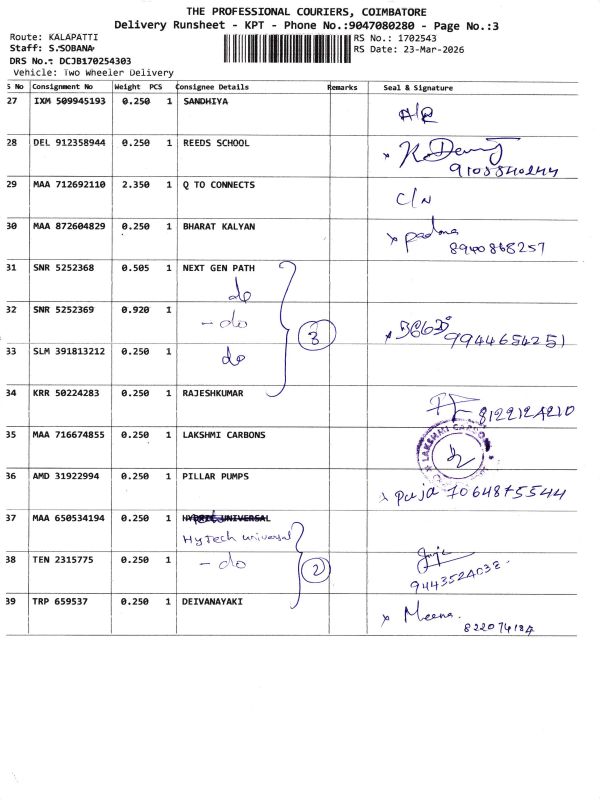 THE PROFESSIONAL COURIERS, COIMBATORE
Delivery Runsheet - KPT - Phone No.:9047080280 - Page No.:3
Route: KALAPATTI
RS No.: 1702543
Staff: S.SOBANA
RS Date: 23-Mar-2026
DRS No.: DCJB170254303
Vehicle: Two Wheeler Delivery
S No Consignment No Weight PCS Consignee Details Remarks Seal & Signature
27 IXM 509945193 0.250 1 SANDHIYA
28 DEL 912358944 0.250 1 REEDS SCHOOL
29 MAA 712692110 2.350 1 Q TO CONNECTS C/N
30 MAA 872604829 0.250 1 BHARAT KALYAN x padma
8940868257
31 SNR 5252368 0.505 1 NEXT GEN PATH
do
32 SNR 5252369 0.920 1
- do 3 9944654251
33 SLM 391813212 0.250 1 do
34 KRR 50224283 0.250 1 RAJESHKUMAR
8122124210
35 MAA 716674855 0.250 1 LAKSHMI CARBONS LAKSHMI CARBONS
36 AMD 31922994 0.250 1 PILLAR PUMPS
x puja 7064875544
37 MAA 650534194 0.250 1 UNIVERSAL
HyTech universal
38 TEN 2315775 0.250 1 - do 2
9443524038
39 TRP 659537 0.250 1 DEIVANAYAKI x Meena